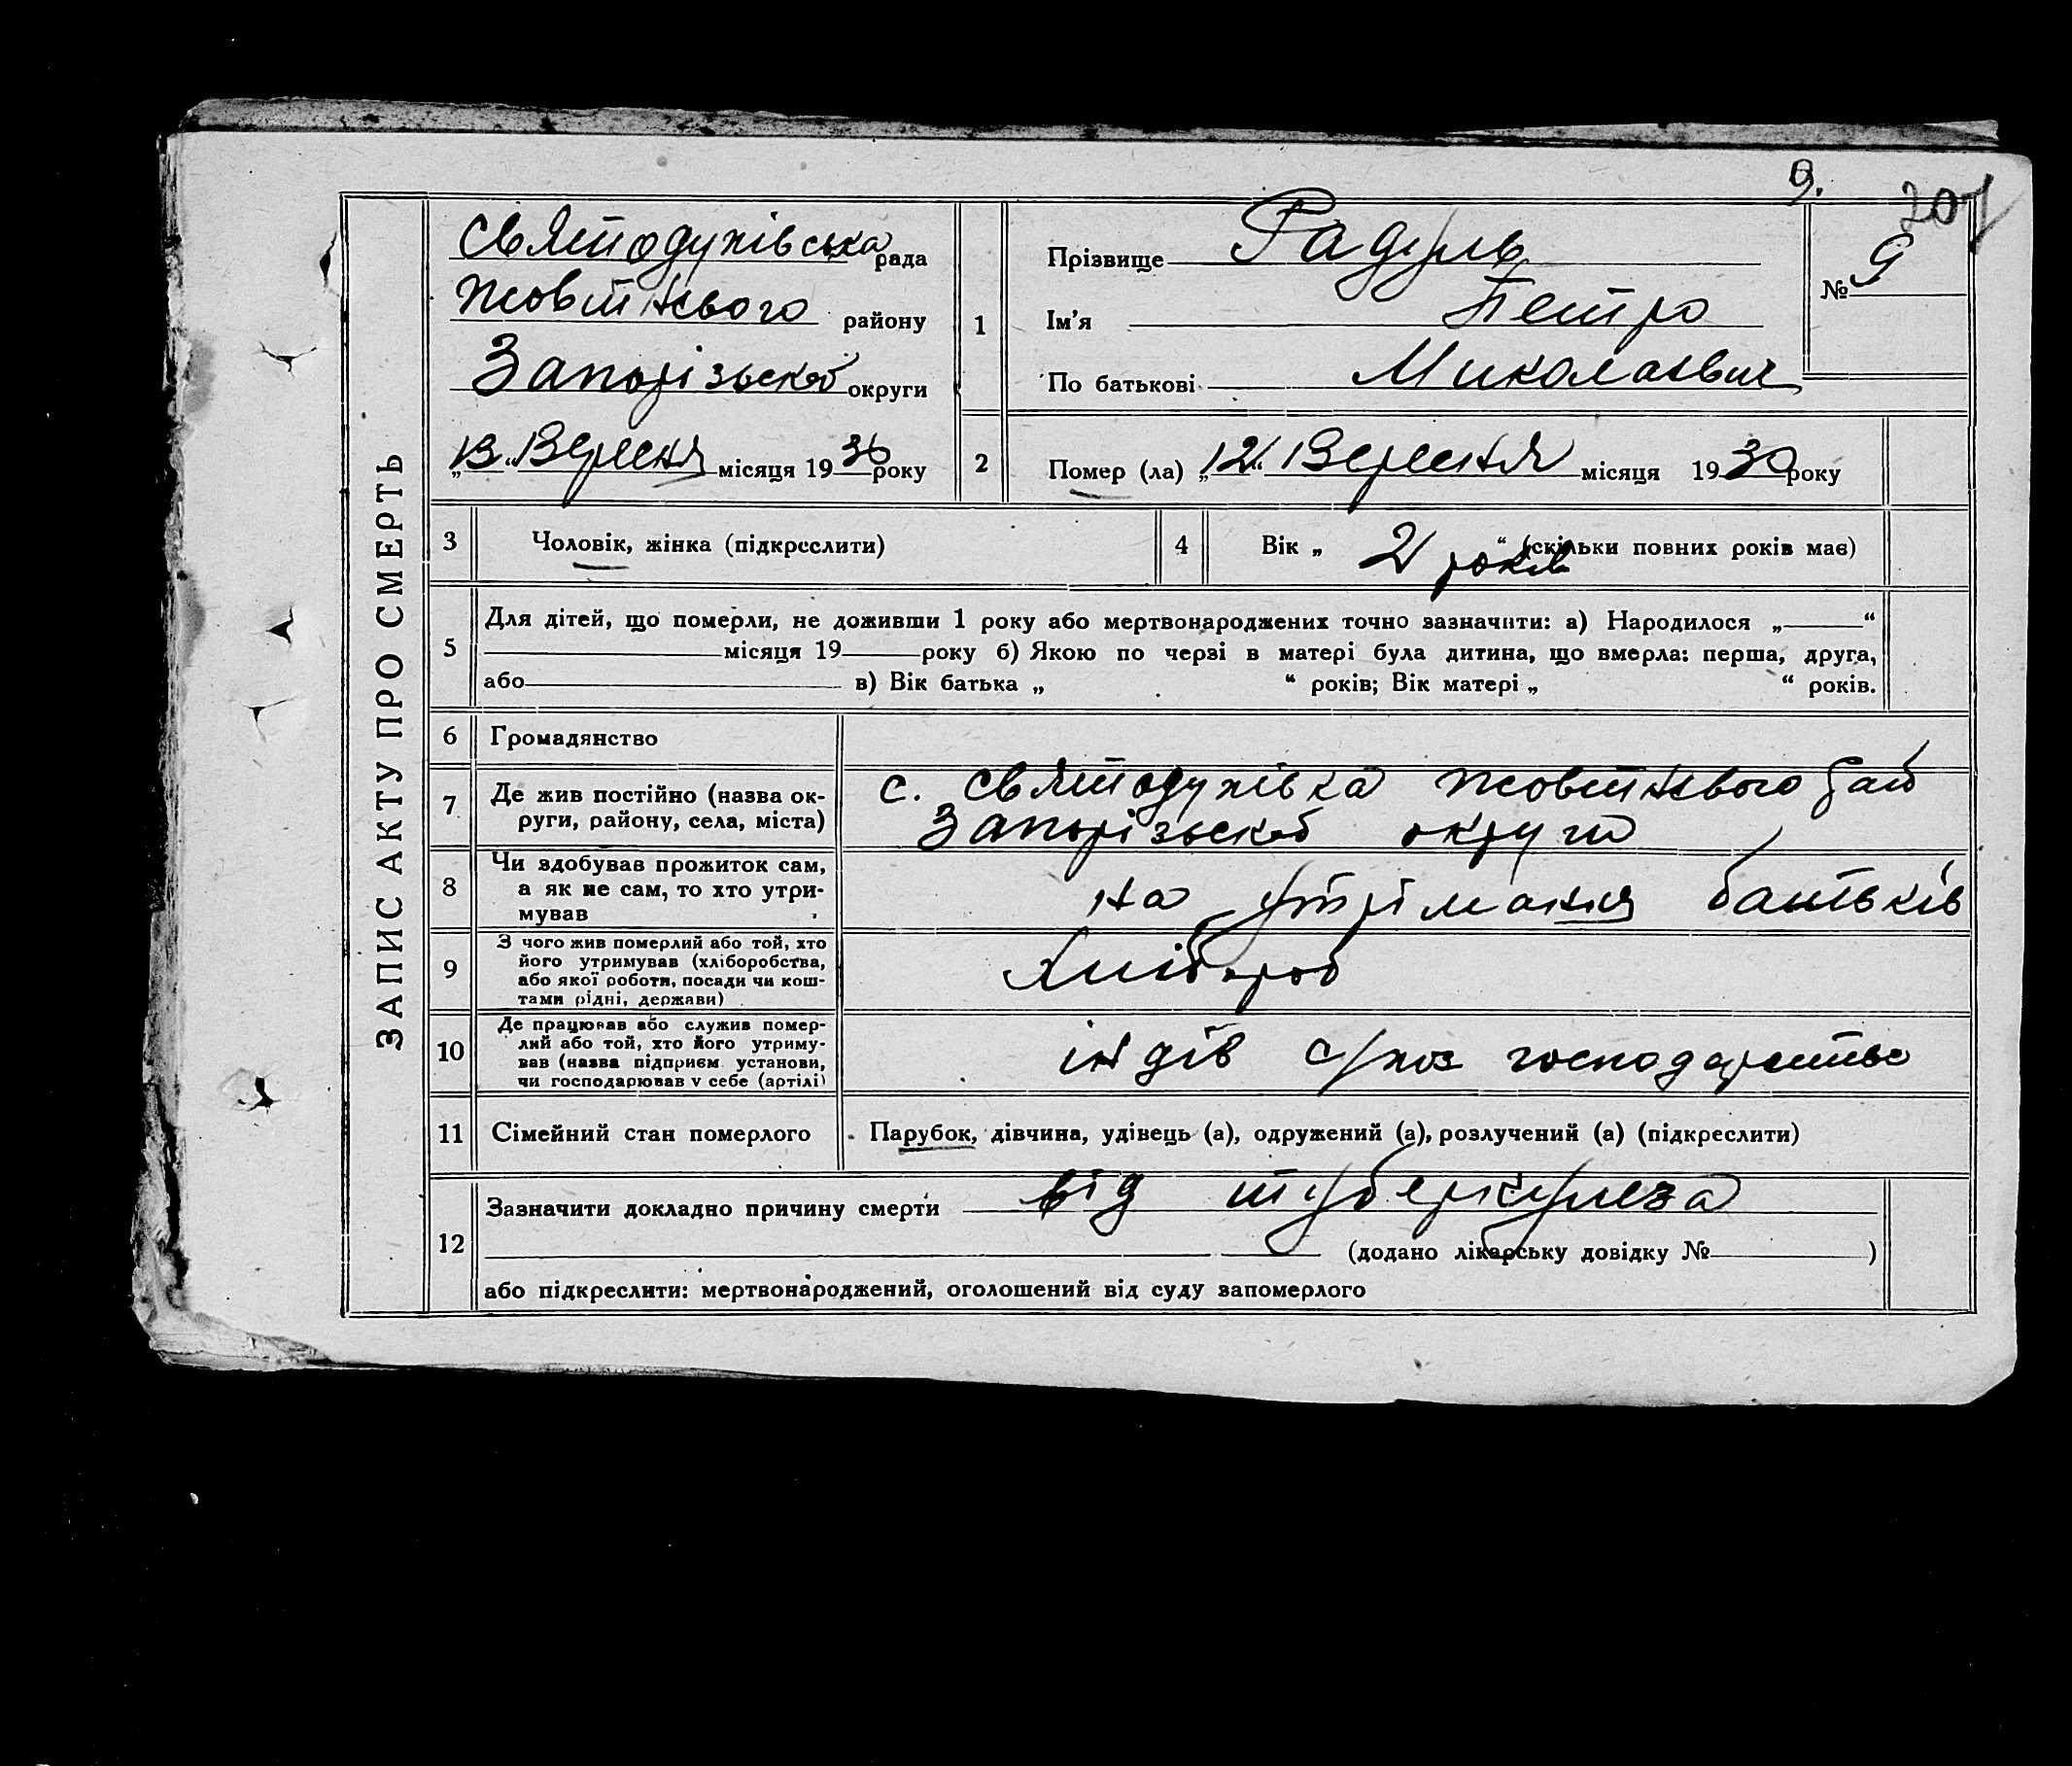 9.
207
ЗАПИС АКТУ ПРО СМЕРТЬ
Святодухівська рада
Жовтневого району
Запорізької округи
„13“ Вересня місяця 1930 року
1
Прізвище Радуль
Ім'я Петро
По батькові Миколаєвич
№ 9
2
Помер (ла) „12“ Вересня місяця 1930 року
3
Чоловік, жінка (підкреслити)
4
Вік „ 2 років “ (скільки повних років має)
5
Для дітей, що померли, не доживши 1 року або мертвонароджених точно зазначити: а) Народилося „ “
місяця 19 року б) Якою по черзі в матері була дитина, що вмерла: перша, друга,
або в) Вік батька „ “ років; Вік матері „ “ років.
6
Громадянство
7
Де жив постійно (назва ок-
руги, району, села, міста)
с. Святодухівка Жовтневого рай
Запорізької округи
8
Чи здобував прожиток сам,
а як не сам, то хто утри-
мував
на утрімання батьків
9
З чого жив померлий або той, хто
його утримував (хліборобства,
або якої роботи, посади чи кош-
тами рідні, держави)
Хлібороб
10
Де працював або служив помер-
лий або той, хто його утриму-
вав (назва підприєм установи,
чи господарював у себе (артілі)
індів господарство
11
Сімейний стан померлого
Парубок, дівчина, удівець (а), одружений (а), розлучений (а) (підкреслити)
12
Зазначити докладно причину смерти від туберкулеза
(додано лікарську довідку № )
або підкреслити: мертвонароджений, оголошений від суду запомерлого